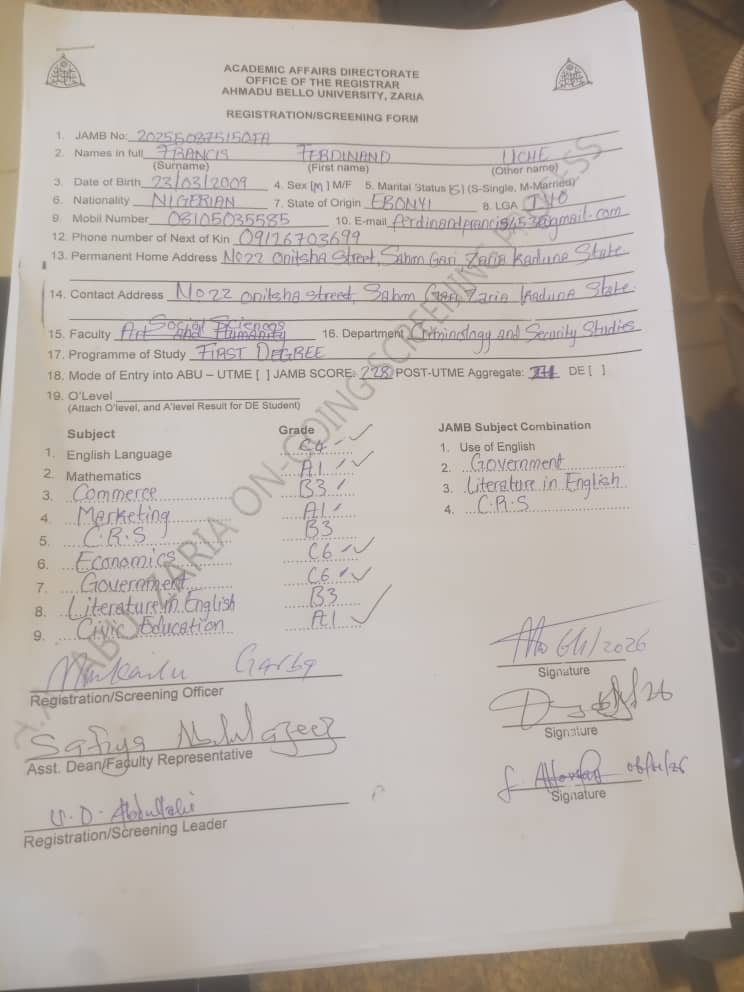 ACADEMIC AFFAIRS DIRECTORATE
OFFICE OF THE REGISTRAR
AHMADU BELLO UNIVERSITY, ZARIA
REGISTRATION/SCREENING FORM
1. JAMB No: 202550875150FA
2. Names in full FRANCIS FERDINAND UCHE
(Surname) (First name) (Other name)
3. Date of Birth 23/03/2009 4. Sex [M] M/F 5. Marital Status [S] (S-Single, M-Married)
6. Nationality NIGERIAN 7. State of Origin EBONYI 8. LGA IVO
9. Mobil Number 08105035585 10. E-mail
12. Phone number of Next of Kin 09126703699
13. Permanent Home Address No 22 Onitsha Street, Sabm Gari, Zaria Kaduna State
14. Contact Address No 22 Onitsha street, Sabm Gari Zaria Kaduna State.
Social Sciences
15. Faculty Art And Humanity 16. Department Criminology and Security Studies
17. Programme of Study FIRST DEGREE
18. Mode of Entry into ABU – UTME [ ] JAMB SCORE: 228 POST-UTME Aggregate: DE [ ]
19. O'Level
(Attach O'level, and A'level Result for DE Student)
Subject Grade JAMB Subject Combination
1. English Language C4 1. Use of English
2. Mathematics A1 2. Government
3. Commerce B3 3. Literature in English
4. Marketing A1 4. C.R.S
5. C.R.S B3
6. Economics C6
7. Government C6
8. Literature in English B3
9. Civic Education A1
Garba
Registration/Screening Officer
6/1/2026
Signature
Safiya Abdulazeez
Asst. Dean/Faculty Representative
Signature
U. D. Abdullahi
Registration/Screening Leader
Signature
ABU ZARIA ON-GOING SCREENING PROCESS